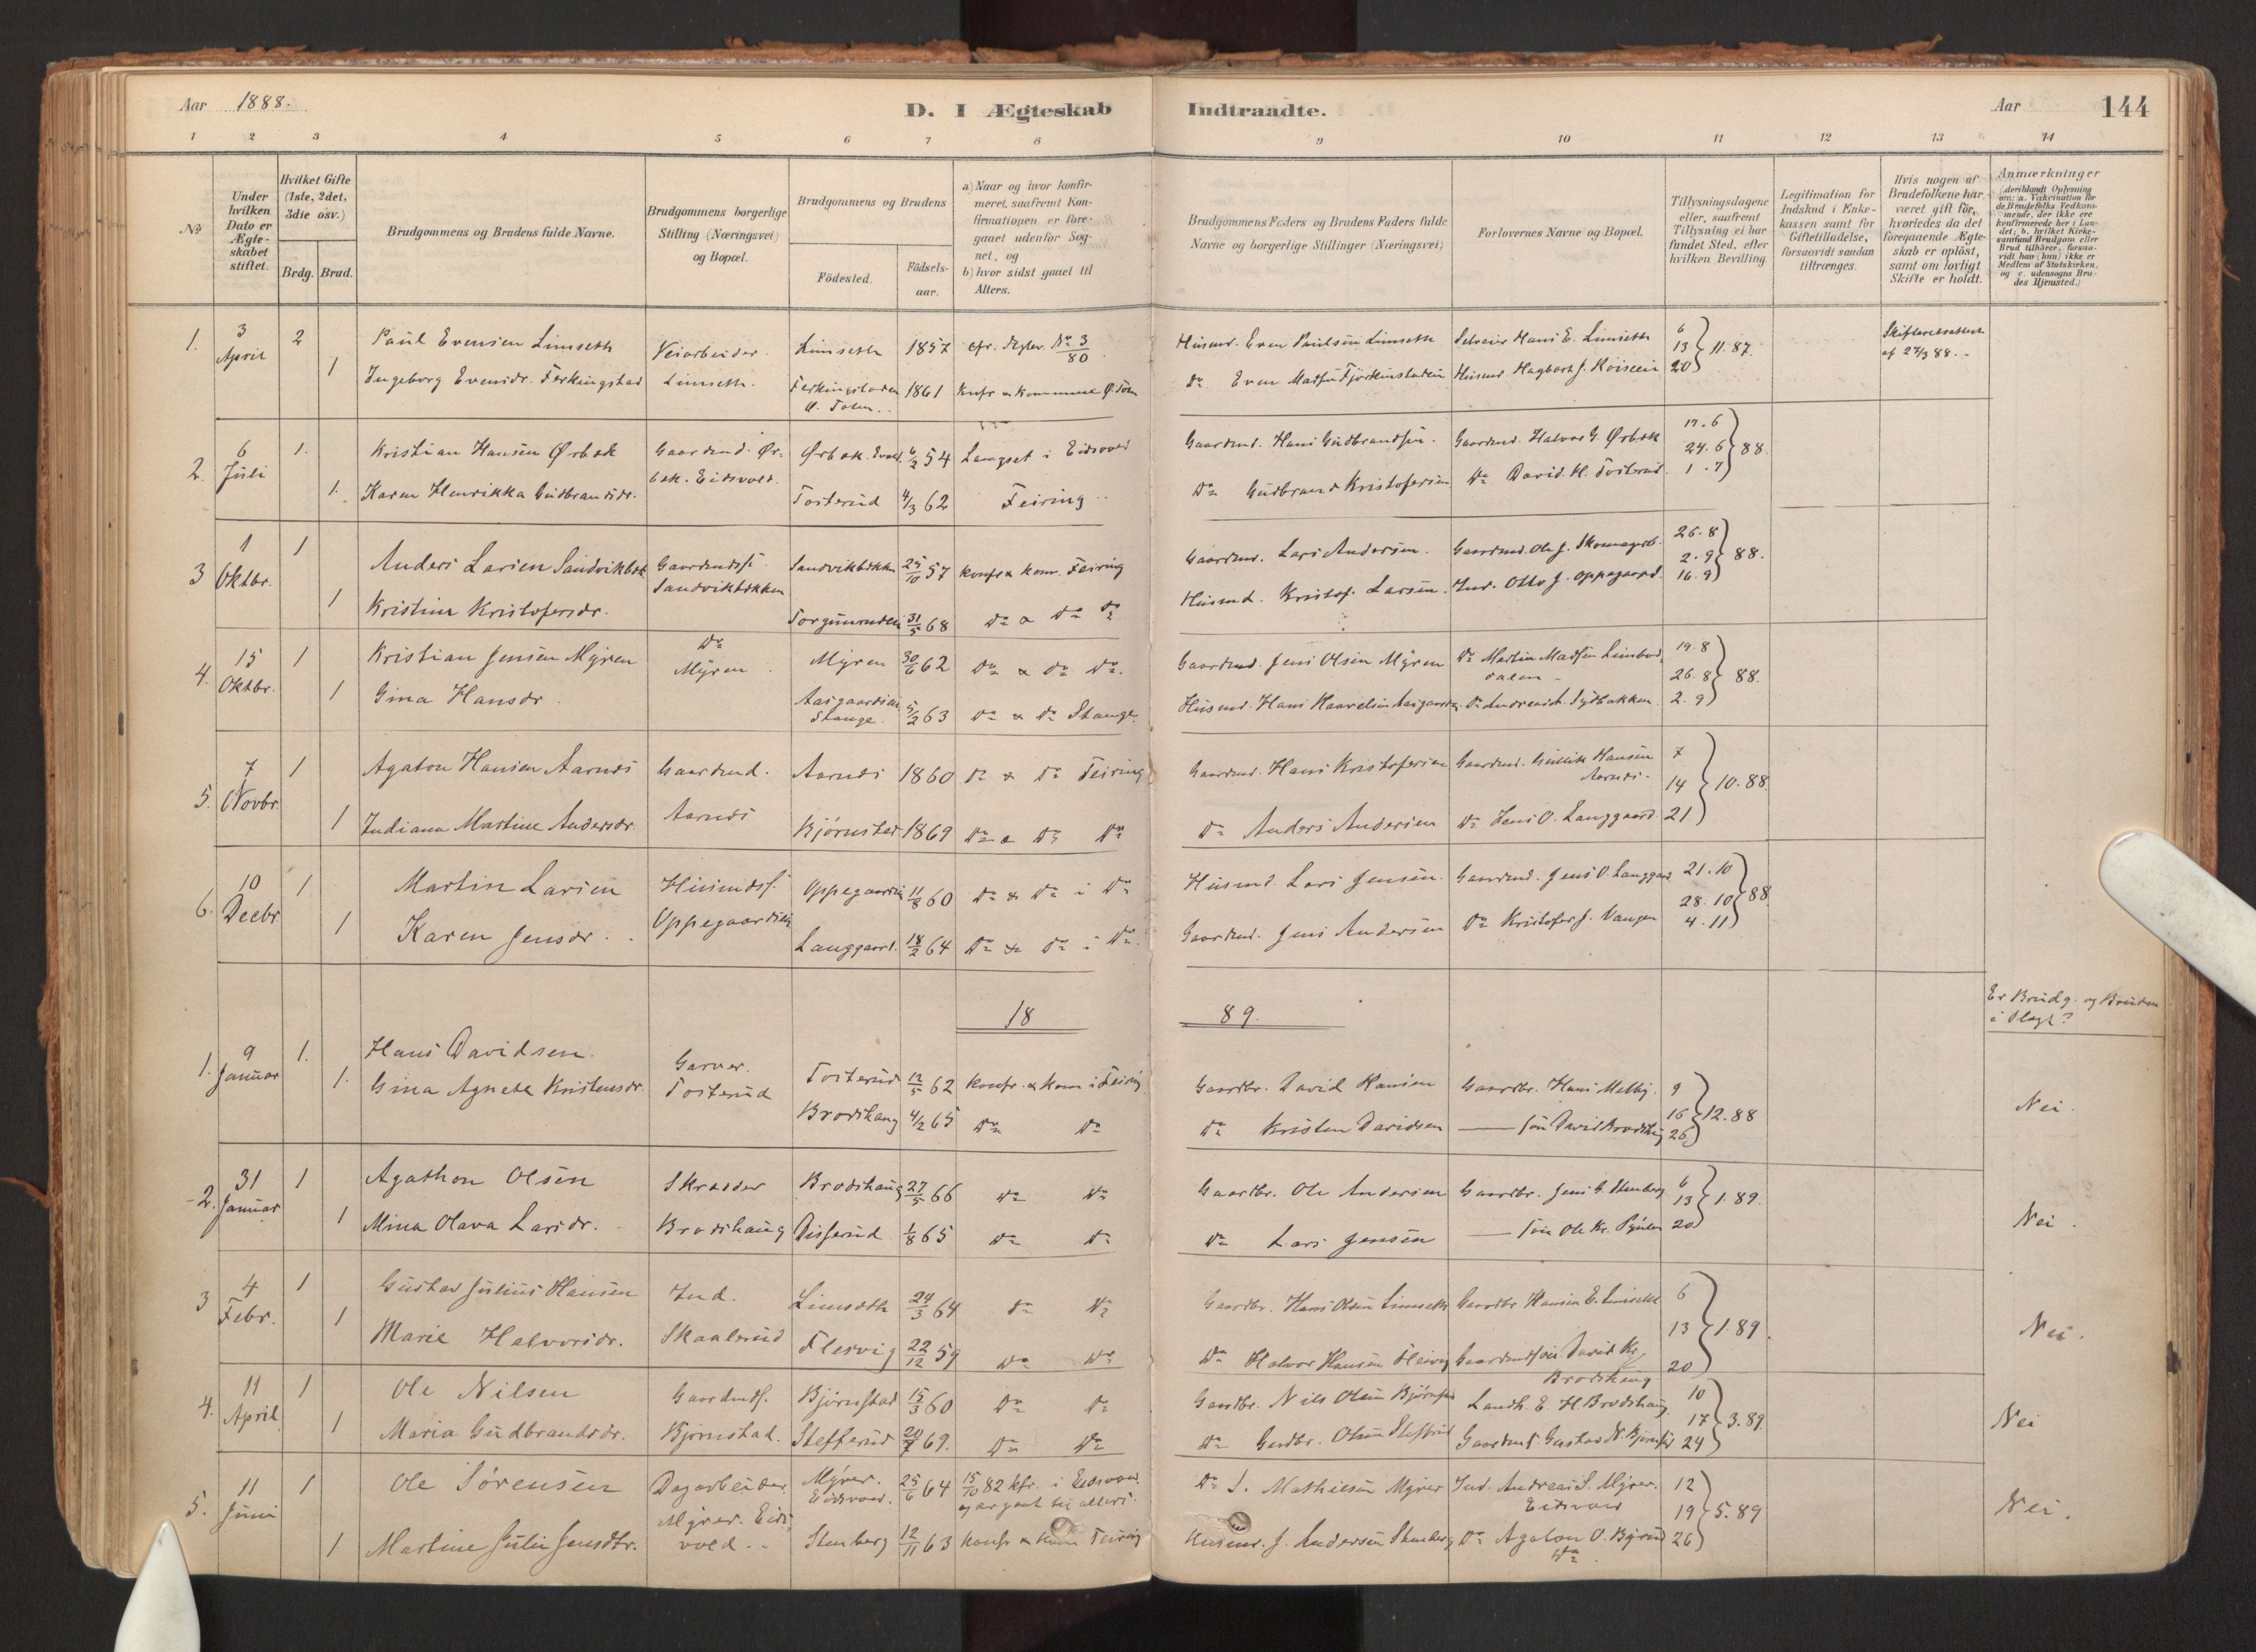 Aar 1888.
D. I Ægteskab Indtraadte.
Aar 144
1 2 3 4 5 6 7 8 9 10 11 12 13 14
No
Under hvilken Dato er Ægteskabet stiftet.
Hvilket Gifte (1ste, 2det, 3die osv.)
Brdg. Brud.
Brudgommens og Brudens fulde Navne.
Brudgommens borgerlige Stilling (Næringsvei) og Bopæl.
Brudgommens og Brudens
Födested.
Födsels-aar.
a) Naar og hvor konfirmeret, saafremt Konfirmationen er foregaaet udenfor Sognet, og
b) hvor sidst gaaet til Alters.
Brudgommens Faders og Brudens Faders fulde Navne og borgerlige Stillinger (Næringsvei)
Forlovernes Navne og Bopæl.
Tillysningsdagene eller, saafremt Tillysning ei har fundet Sted, efter hvilken Bevilling.
Legitimation for Indskud i Enkekassen samt for Giftetilladelse, forsaavidt saadan tiltrænges.
Hvis nogen af Brudefolkene har været gift för, hvorledes da det foregaaende Ægteskab er oplöst, samt om lovligt Skifte er holdt.
Anmærkninger (deriblandt Oplysning om: a. Vakcination for de Brudefolks Vedkommende, der ikke ere konfirmerede her i Landet; b. hvilket Kirkesamfund Brudgom eller Brud tilhörer, forsaavidt han (hun) ikke er Medlem af Statskirken, og c. udensogns Brudes Hjemsted.)
1. 3 April 2 Paul Evensen Limseth Veiarbeider. Limseth 1857 cfr. Mgbr. No 3/80 Husmd. Even Paulsen Limseth Selveier Hans E. Limseth 6 13 20 } 11.87. Skifteretsattest af 27/3 88.-
1 Ingeborg Evensdr. Ferkingstad Limseth. Ferkingstaden Ø. Toten. 1861 Konfr & kommune Ø. Toten Do Even Madsen Husmd. Hagbart J.
2. 6 Juli 1. Kristian Hansen Ørbæk Gaardmd. Ørbæk. Eidsvold. Ørbæk. Eidsv. 6/2 54 Langset i Eidsvold Gaardmd. Hans Gudbrandsen. Gaardmd. Halvor G. Ørbæk 17.6 24.6 1.7 } 88.
1. Karen Henrikka Gudbrandsdr. Tosterud 4/3 62 Feiring Do Gudbrand Kristofersen Do David H. Tosterud.
3 1 Oktbr. 1 Anders Larsen Sandvikbæk Gaardmdss. Sandvikbækken Sandvikbækken 25/10 57 Konfr & kom. Feiring Gaardmd. Lars Andersen. Gaardmd. Ole J. 26.8 2.9 16.9 } 88.
1 Kristine Kristofersdr. 31/5 68 Do & Do Do Husmd. Kristof. Larsen. Ind. Otto J. Oppegaard.
4. 15 Oktbr. 1 Kristian Jensen Myren Do Myren Myren 30/6 62 Do & Do Do. Gaardmd. Jens Olsen Myren Do Martin Madsen 19.8 26.8 2.9 } 88.
1 Gina Hansdr Aasgaardseie Stange. 5/2 63 Do & Do Stange. Husmd. Hans Haavelsen Do Andreas
5. 7 Novbr. 1 Agaton Hansen Aarnæs Gaardmd. Aarnæs Aarnæs 1860 Do & Do Feiring Gaardmd. Hans Kristofersen Gaardmd. Gullik Hansen Aarnæs. 7 14 21 } 10.88.
1 Indiana Martine Andersdr. Bjørnstad 1869 Do & Do Do Do Anders Andersen Do Jens O. Langgaard
6. 10 Decbr. 1 Martin Larsen Husmdss. Oppegaardseie Oppegaardseie 11/8 60 Do & Do i Do Husmd. Lars Jensen. Gaardmd. Jens O. Langgaard 21.10 28.10 4.11 } 88.
1 Karen Jensdr. Langgaard. 18/2 64 Do & Do i Do. Gaardmd. Jens Andersen Do Kristofer J. Vangen
18 89.
Er Brudg. og Bruden i Slægt?
1. 9 Januar 1. Hans Davidsen Garver. Tosterud Tosterud 12/5 62 Konfr. & Kom i Feiring Gaardbr. David Hansen Gaardbr. Hans Melby. 9 16 26 } 12.88 Nei.
1. Gina Agnete Kristensdr. Brodshaug 4/2 65 Do Do Do Kristen Davidsen — søn David Brodshaug
2. 31 Januar 1 Agathon Olsen Skrædder Brodshaug Brodshaug 27/5 66 Do Do Gaardbr. Ole Andersen Gaardbr. Jens G. Stenberg 6 13 20 } 1.89. Nei.
1 Mina Olava Larsdr. Disserud 1/8 65 Do Do Do Lars Jensen — søn Ole Kr.
3 4 Febr. 1 Gustav Julius Hansen Ind. Skaalerud Limseth 24/3 64 Do Do Gaardbr. Hans Olsen Limseth Gaardbr Hansen E. Limseth 6 13 20 } 1.89. Nei.
1 Marie Halvorsdr. Flesvig 22/12 59 Do Do Do Halvor Hansen Flesvig Gaardmdsøn David Kr. Brodshaug
4. 11 April 1 Ole Nilsen Gaardmds. Bjørnstad. Bjørnstad 15/3 60 Do Do Gaardbr. Nils Olsen Bjørnstad Landh. E. H. Brodshaug 10 17 24 } 3.89. Nei
1 Maria Gudbrandsdr. Stefferud 20/7 69. Do Do Do Gudbr. Olsen Stefferud Gaardmds. Gustav N. Bjørnstad
5. 11 Juni 1 Ole Sørensen Dagarbeider. Myrer. Eidsvold.. Myrer. Eidsvold. 25/6 64 15/10 82 kfr. i Eidsvold. Do S. Mathiesen Myrer Ind. Andreas S. Myrer. Eidsvold 12 19 26 } 5.89 Nei.
1 Martine Julie Jensdtr. Stenberg 12/11 63 Konfr & Kom Feiring Husmd. J. Andersen Stenberg Do Agaton O. Do